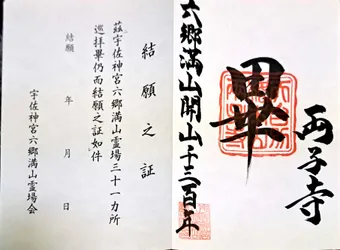 六郷満山開山千三百年
畢
両子寺
結願之証
茲宇佐神宮六郷満山霊場三十一カ所
巡拝畢仍而結願之証如件
結願　年　月　日
宇佐神宮六郷満山霊場会